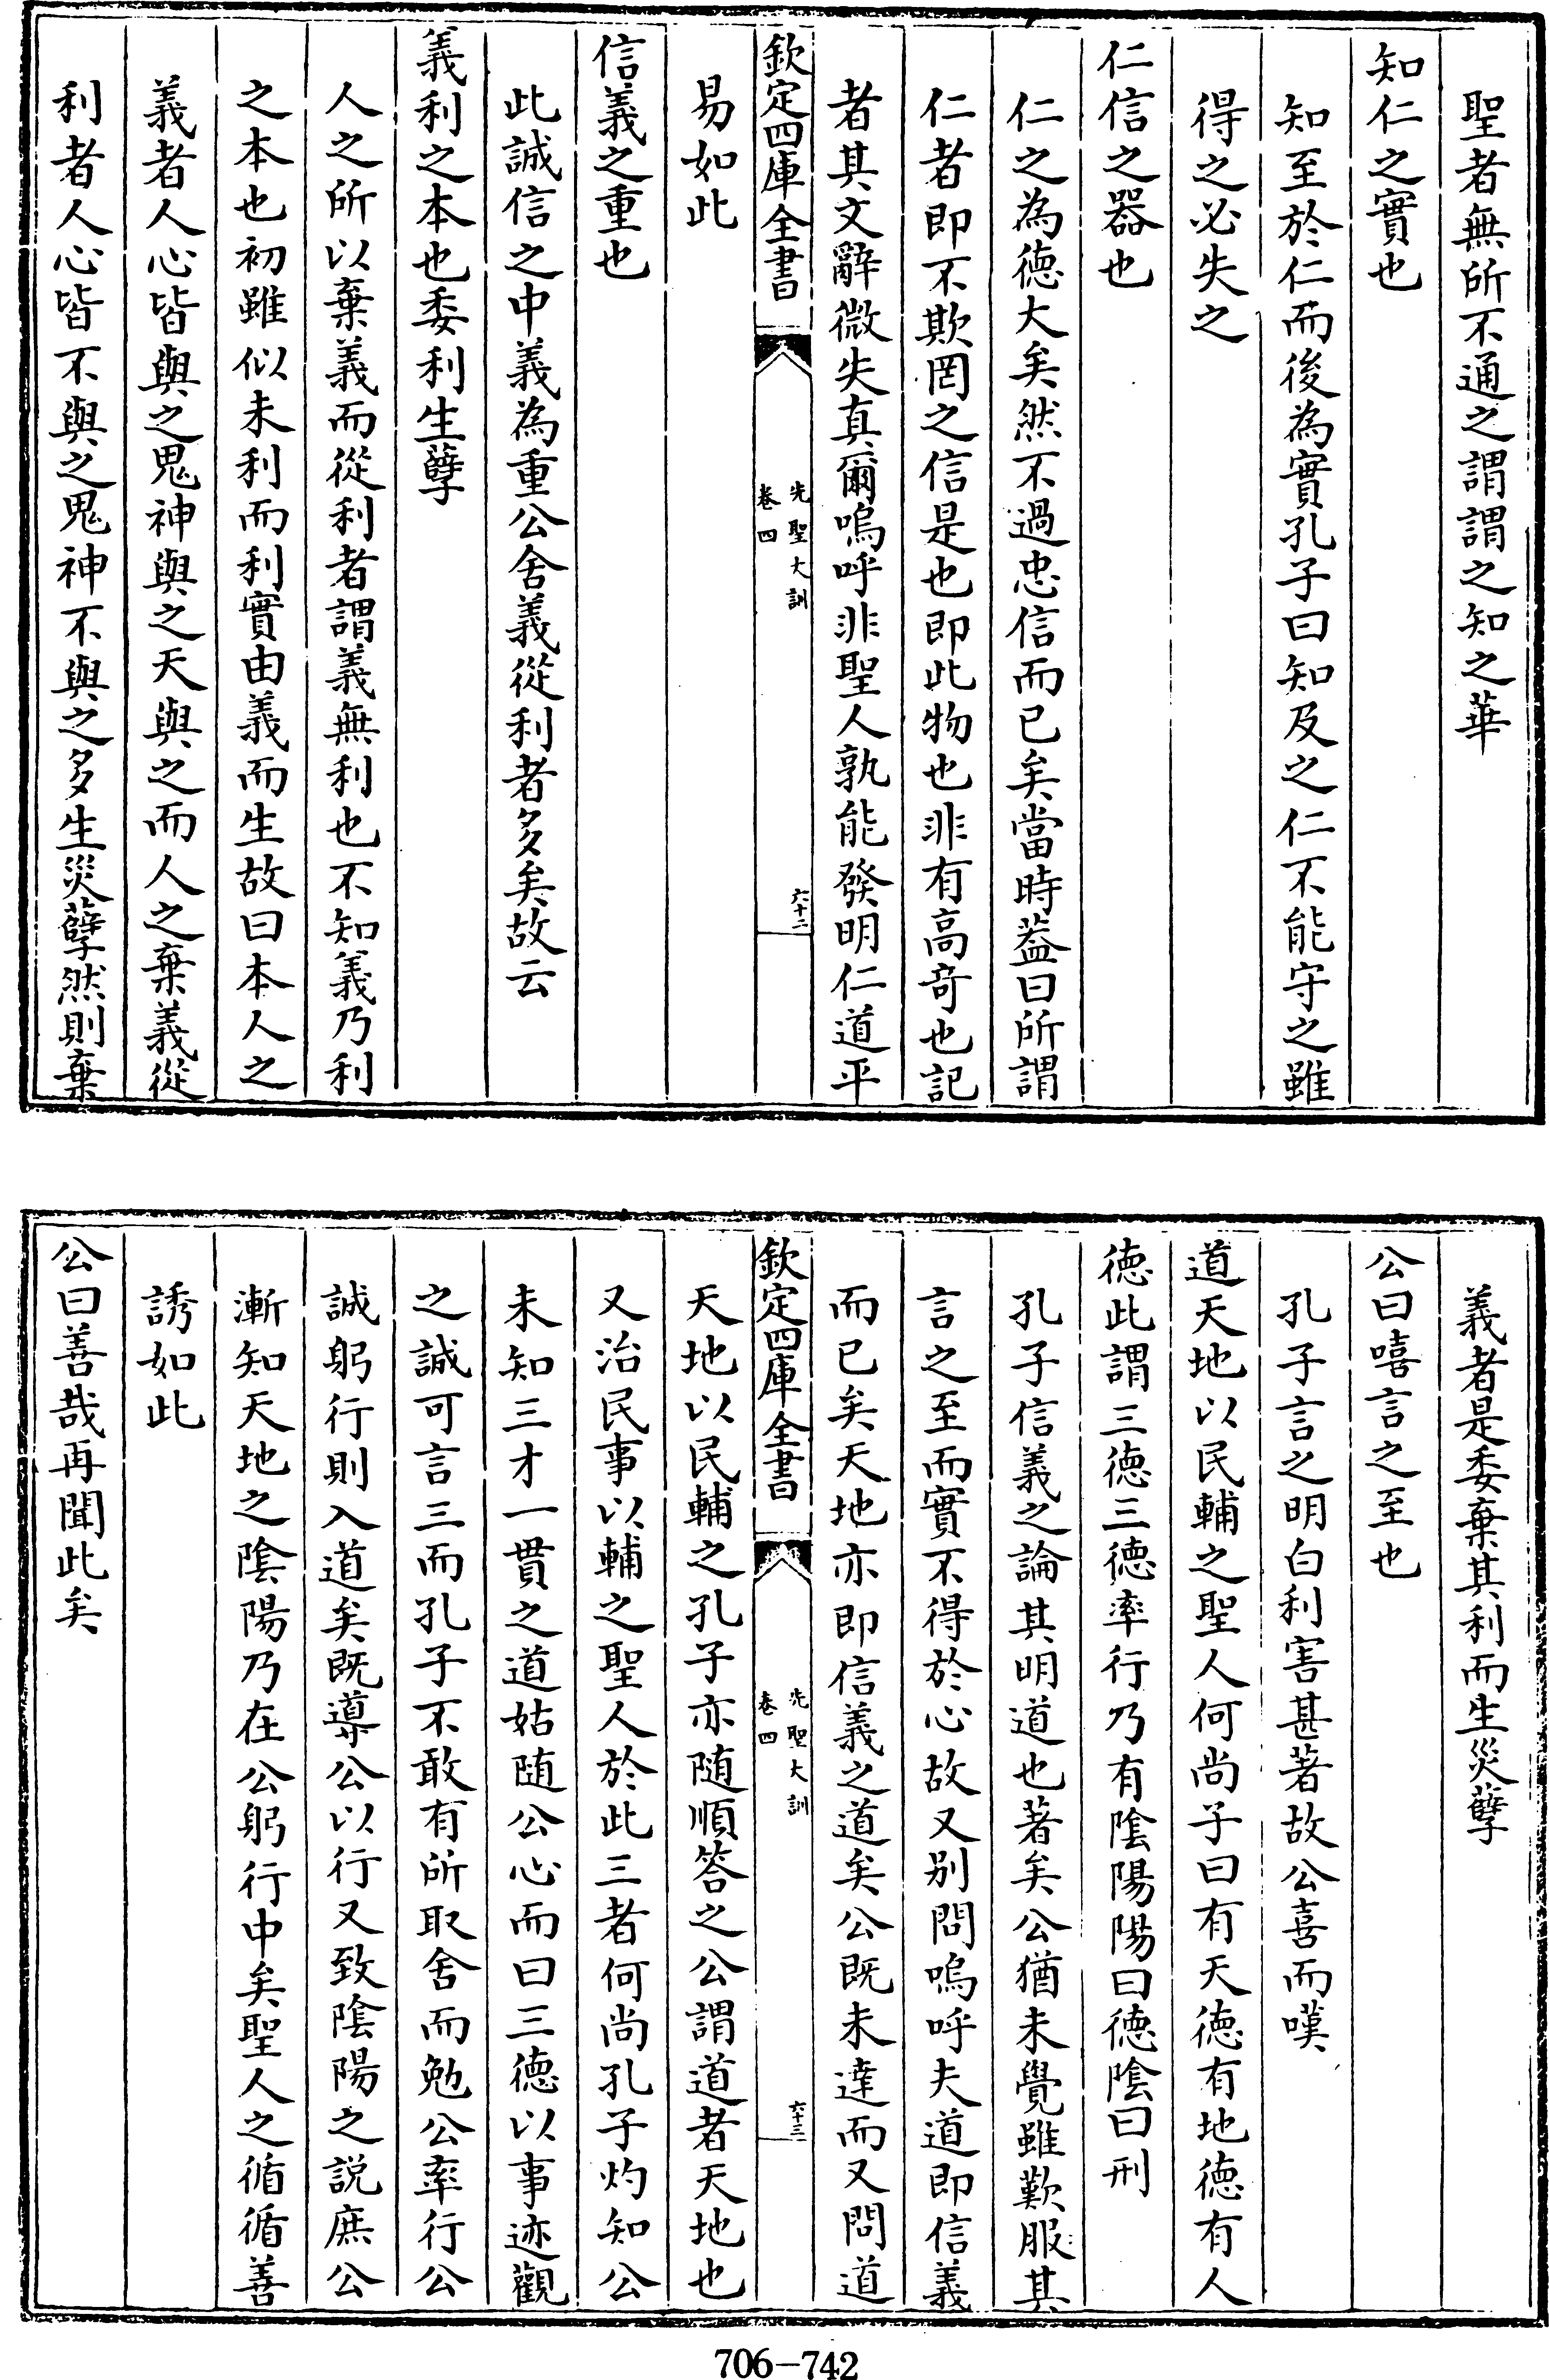 聖者無所不通之謂謂之知之華
知仁之實也
知至於仁而後為實孔子曰知及之仁不能守之雖
得之必失之
仁信之器也
仁之為德大矣然不過忠信而已矣當時葢曰所謂
仁者即不欺罔之信是也即此物也非有高竒也記
者其文辭微失真爾嗚呼非聖人孰能發明仁道平
欽定四庫全書
先聖大訓
卷四
六十二
易如此
信義之重也
此誠信之中義為重公舍義從利者多矣故云
義利之本也委利生孽
人之所以棄義而從利者謂義無利也不知義乃利
之本也初雖似未利而利實由義而生故曰本人之
義者人心皆與之鬼神與之天與之而人之棄義從
利者人心皆不與之鬼神不與之多生災孽然則棄
義者是委棄其利而生災孽
公曰嘻言之至也
孔子言之明白利害甚著故公喜而嘆
道天地以民輔之聖人何尚子曰有天德有地德有人
德此謂三德三德率行乃有陰陽陽曰德陰曰刑
孔子信義之論其明道也著矣公猶未覺雖歎服其
言之至而實不得於心故又别問嗚呼夫道即信義
而已矣天地亦即信義之道矣公既未達而又問道
欽定四庫全書
先聖大訓
卷四
六十三
天地以民輔之孔子亦随順答之公謂道者天地也
又治民事以輔之聖人於此三者何尚孔子灼知公
未知三才一貫之道姑随公心而曰三德以事迹觀
之誠可言三而孔子不敢有所取舍而勉公率行公
誠躬行則入道矣既導公以行又致陰陽之説庶公
漸知天地之陰陽乃在公躬行中矣聖人之循循善
誘如此
公曰善哉再聞此矣
706-742